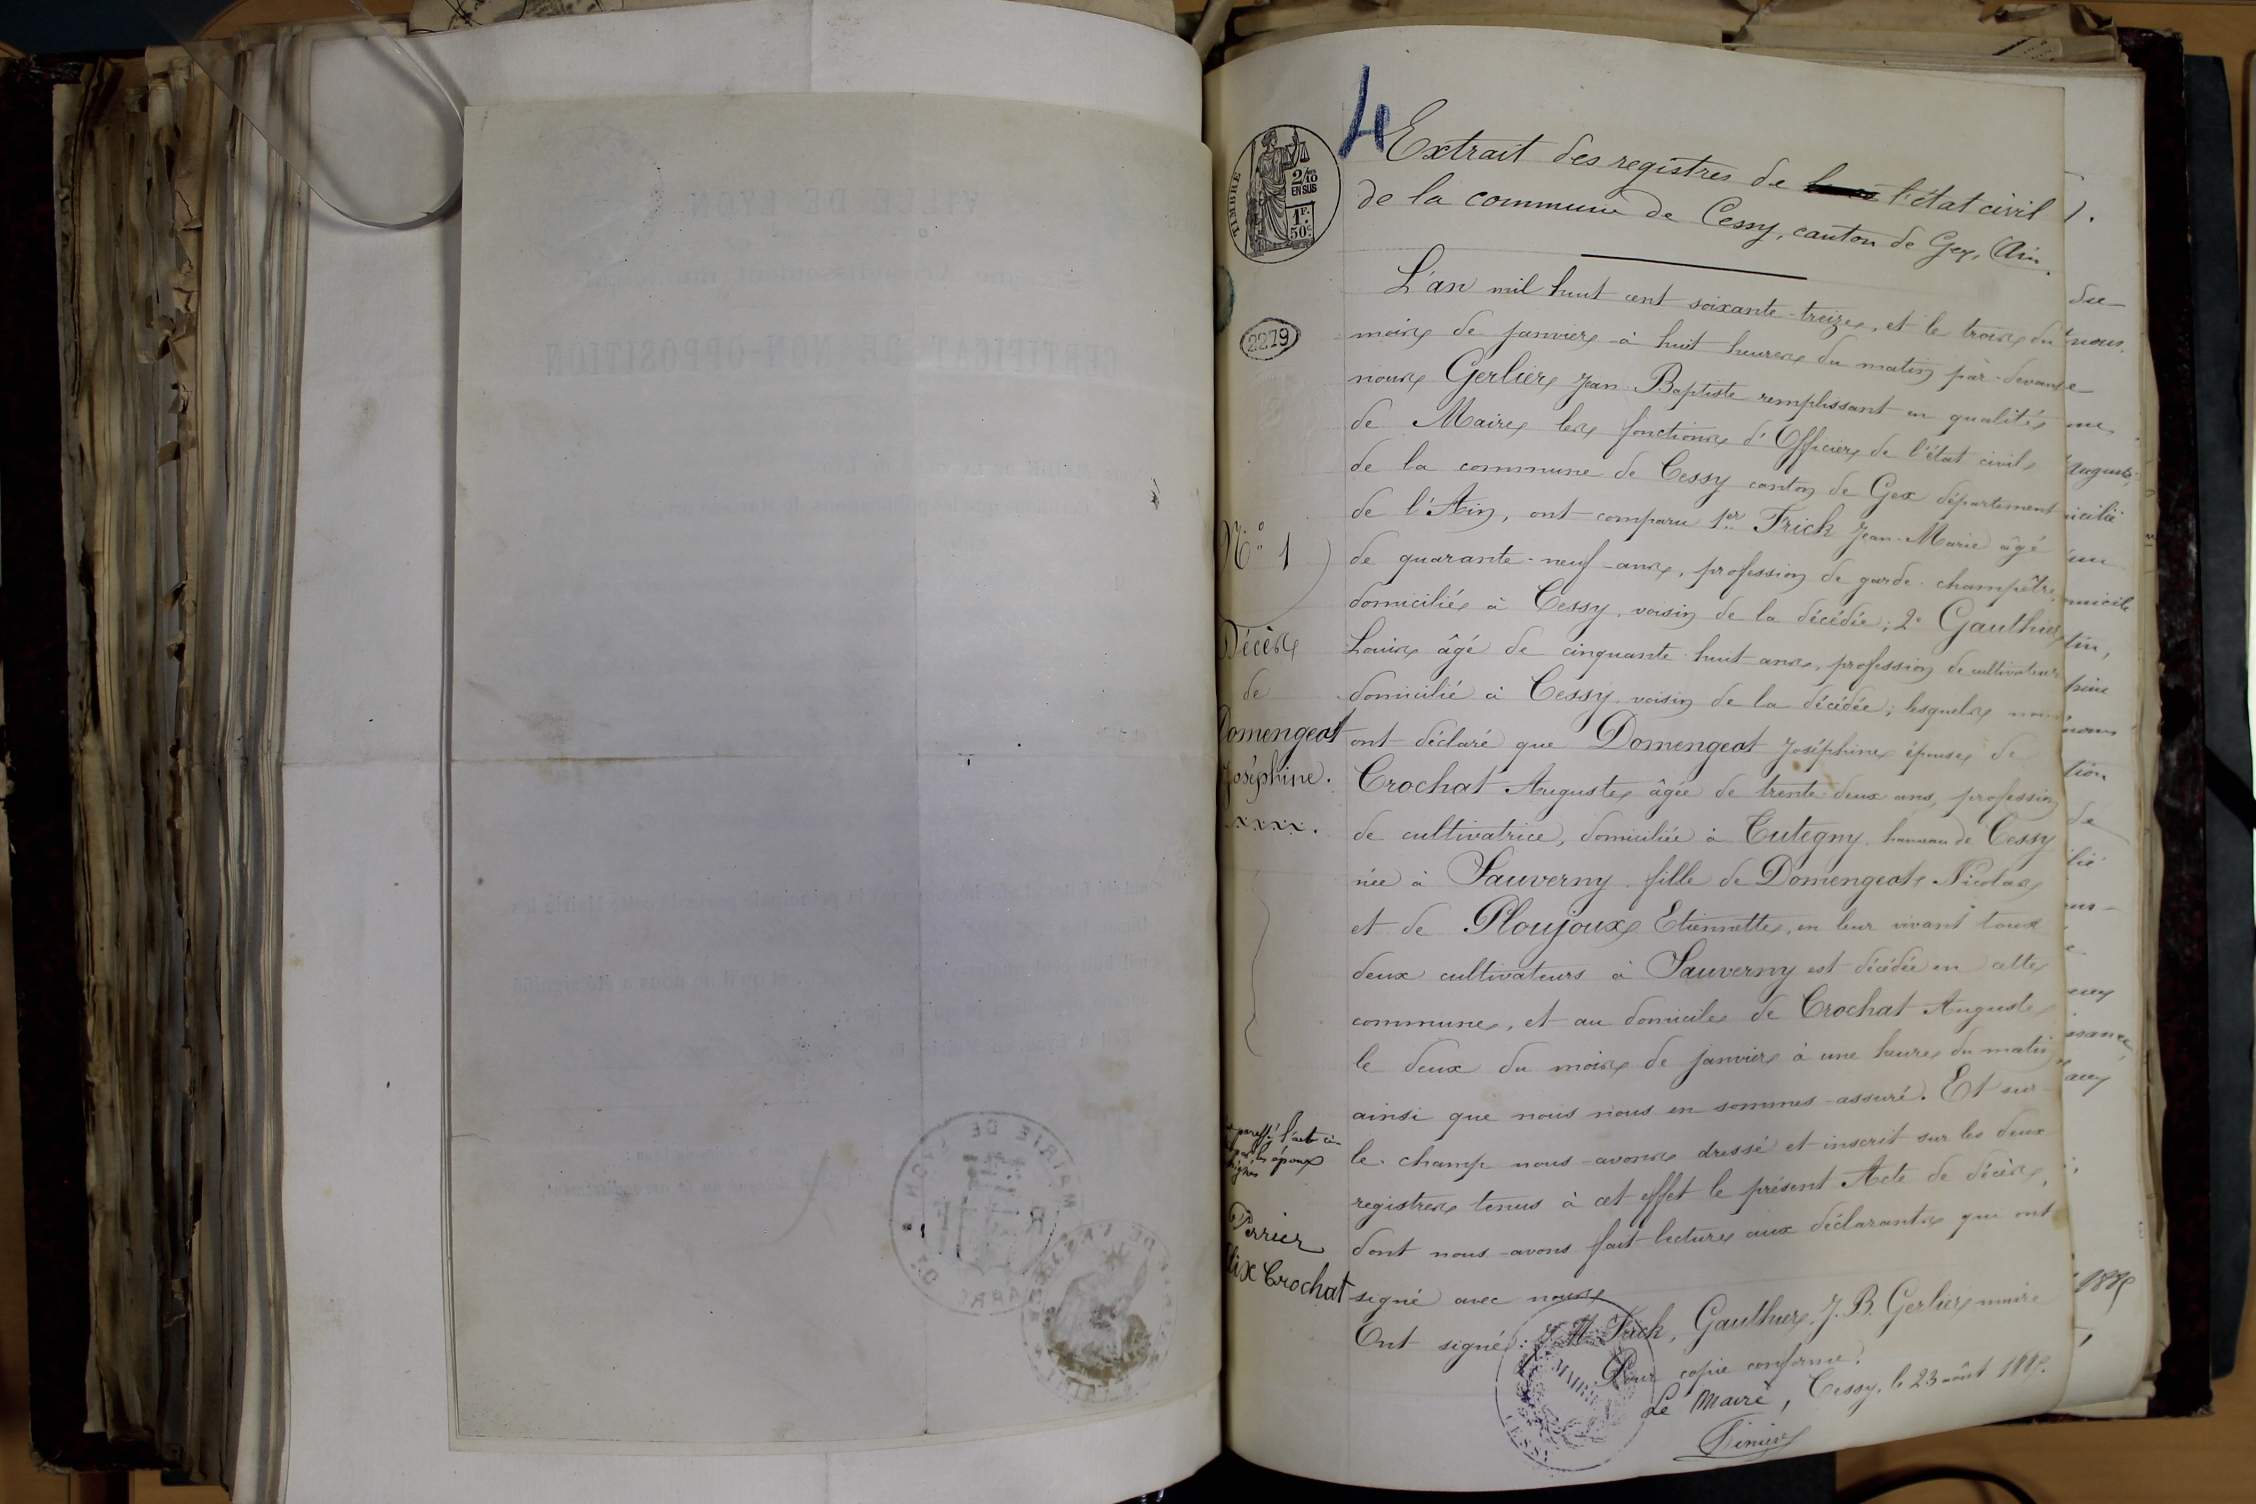 VILLE DE LYON
CERTIFICAT DE NON-OPPOSITION
MAIRIE DE
4
TIMBRE
2/10
EN SUS
1F.
50c
Extrait des registres de l'état civil
de la commune de Cessy, canton de Gex, Ain.
2279
N° 1
Décès
de
Domengeot
Joséphine.
xxxx.
L'an mil huit cent soixante-treize, et le trois du
mois de janvier à huit heures du matin par-devant
nous Gerlier Jean-Baptiste remplissant en qualité
de Maire les fonctions d'Officier de l'état civil
de la commune de Cessy canton de Gex département
de l'Ain, ont comparu 1er Frick Jean-Marie âgé
de quarante-neuf ans, profession de garde-champêtre
domicilié à Cessy, voisin de la décédée; 2e Gauthier
Louis âgé de cinquante-huit ans, profession de cultivateur
domicilié à Cessy voisin de la décédée; lesquels nous
ont déclaré que Domengeot Joséphine épouse de
Crochat Auguste âgée de trente-deux ans, profession
de cultivatrice, domiciliée à Tutegny hameau de Cessy
née à Sauverny fille de Domengeot Nicolas
et de Ploujoux Etiennette, en leur vivant tous
deux cultivateurs à Sauverny est décédée en cette
commune, et au domicile de Crochat Auguste
le deux du mois de janvier à une heure du matin
ainsi que nous nous en sommes assuré. Et sur
le champ nous avons dressé et inscrit sur les deux
registres tenus à cet effet le présent Acte de décès,
dont nous avons fait lecture aux déclarants qui ont
signé avec nous
Ont signé: J. M. Frick, Gauthier, J. B. Gerlier maire
Pour copie conforme.
Le Maire, Cessy, le 23 août
l'acte
les époux
Perrier
Crochat
MAIRIE
CESSY